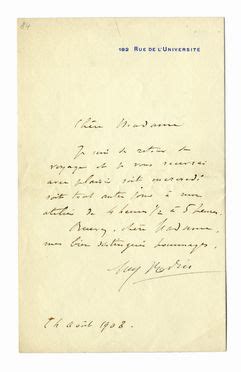 84
182 RUE DE L'UNIVERSITÉ
Chère Madame
Je suis de retour de
voyage et je vous recevrai
avec plaisir soit mercredi
soit tout autre jour à mon
atelier de 4 heures 1/2 à 5 heures.
Recevez, chère Madame,
mes bien distingués hommages.
Aug Rodin
Août 1908.